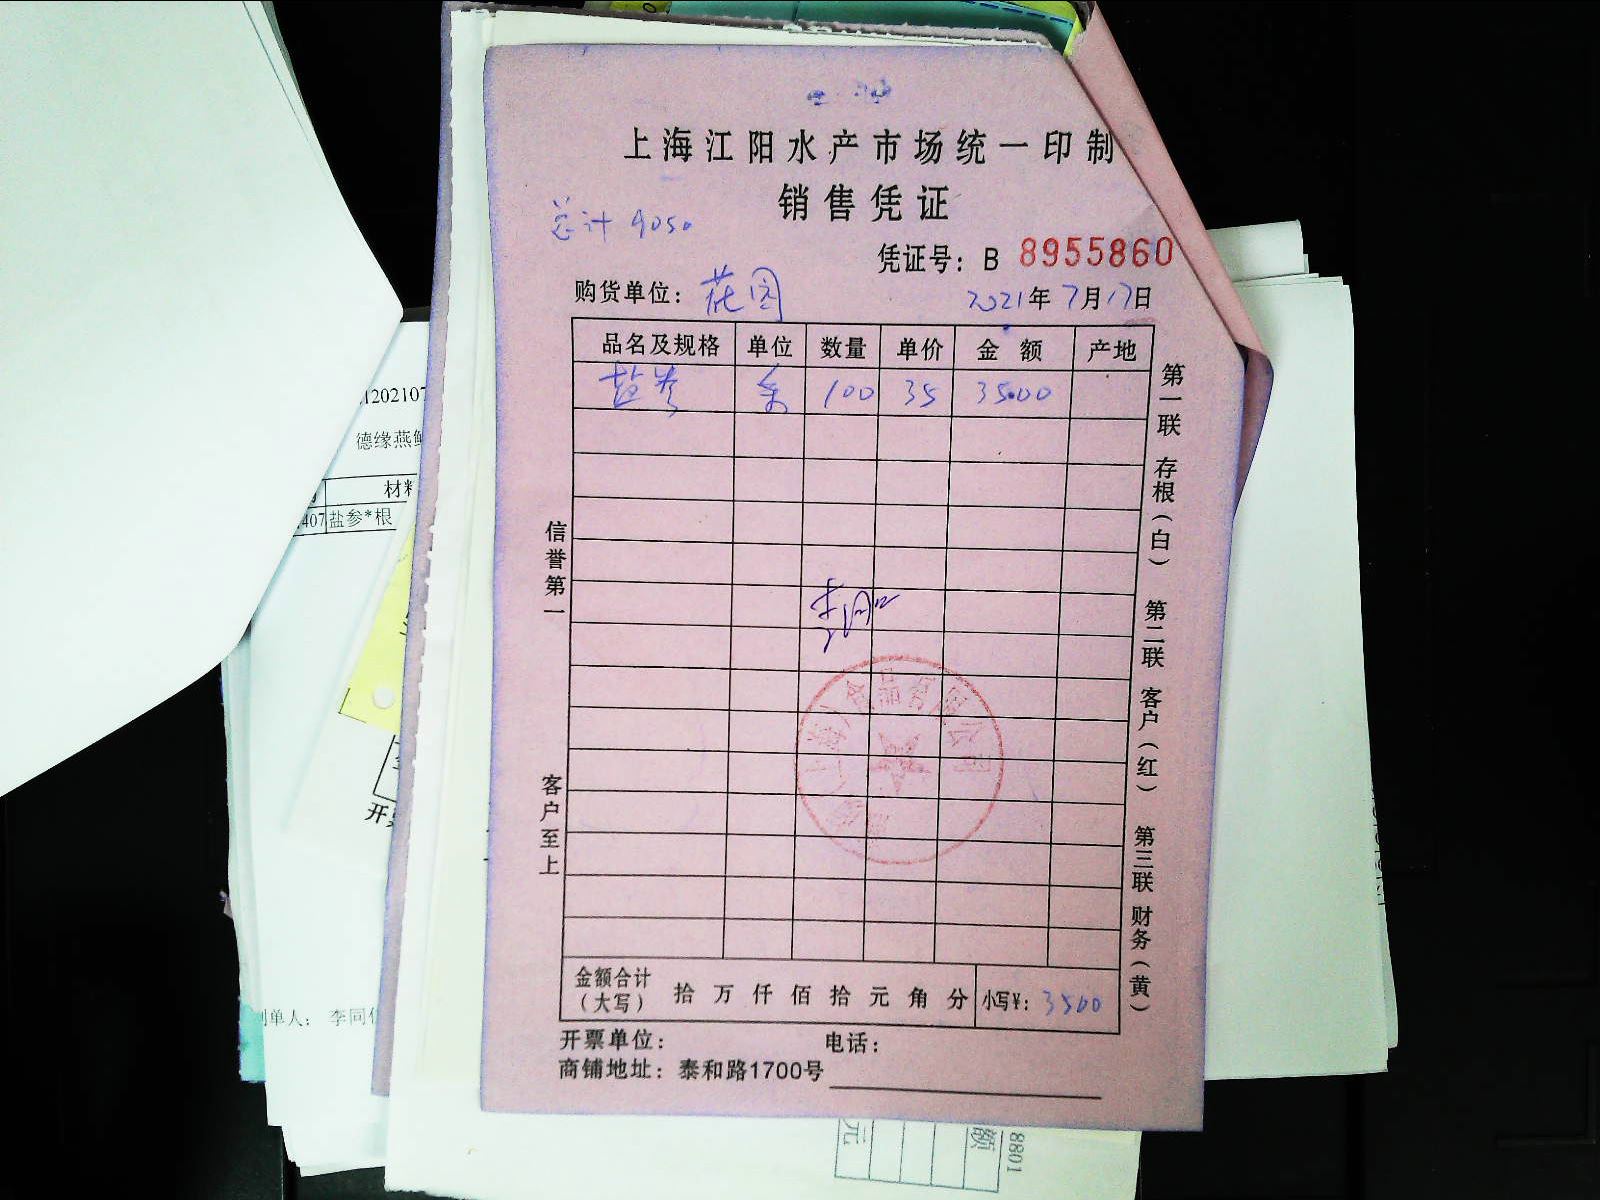 上海江阳水产市场统一印制
销售凭证
总计 9050
凭证号：B 8955860
购货单位：花园 2021年7月17日
品名及规格 单位 数量 单价 金 额 产地
盐参 条 100 35 3500
第一联 存根（白） 第二联 客户（红） 第三联 财务（黄）
信誉第一
客户至上
金额合计（大写） 拾 万 仟 佰 拾 元 角 分 小写¥：3500
开票单位： 电话：
商铺地址：泰和路1700号
1202107
德缘燕
材料
407 盐参*根
开票
制单人： 李同
元
额
8801